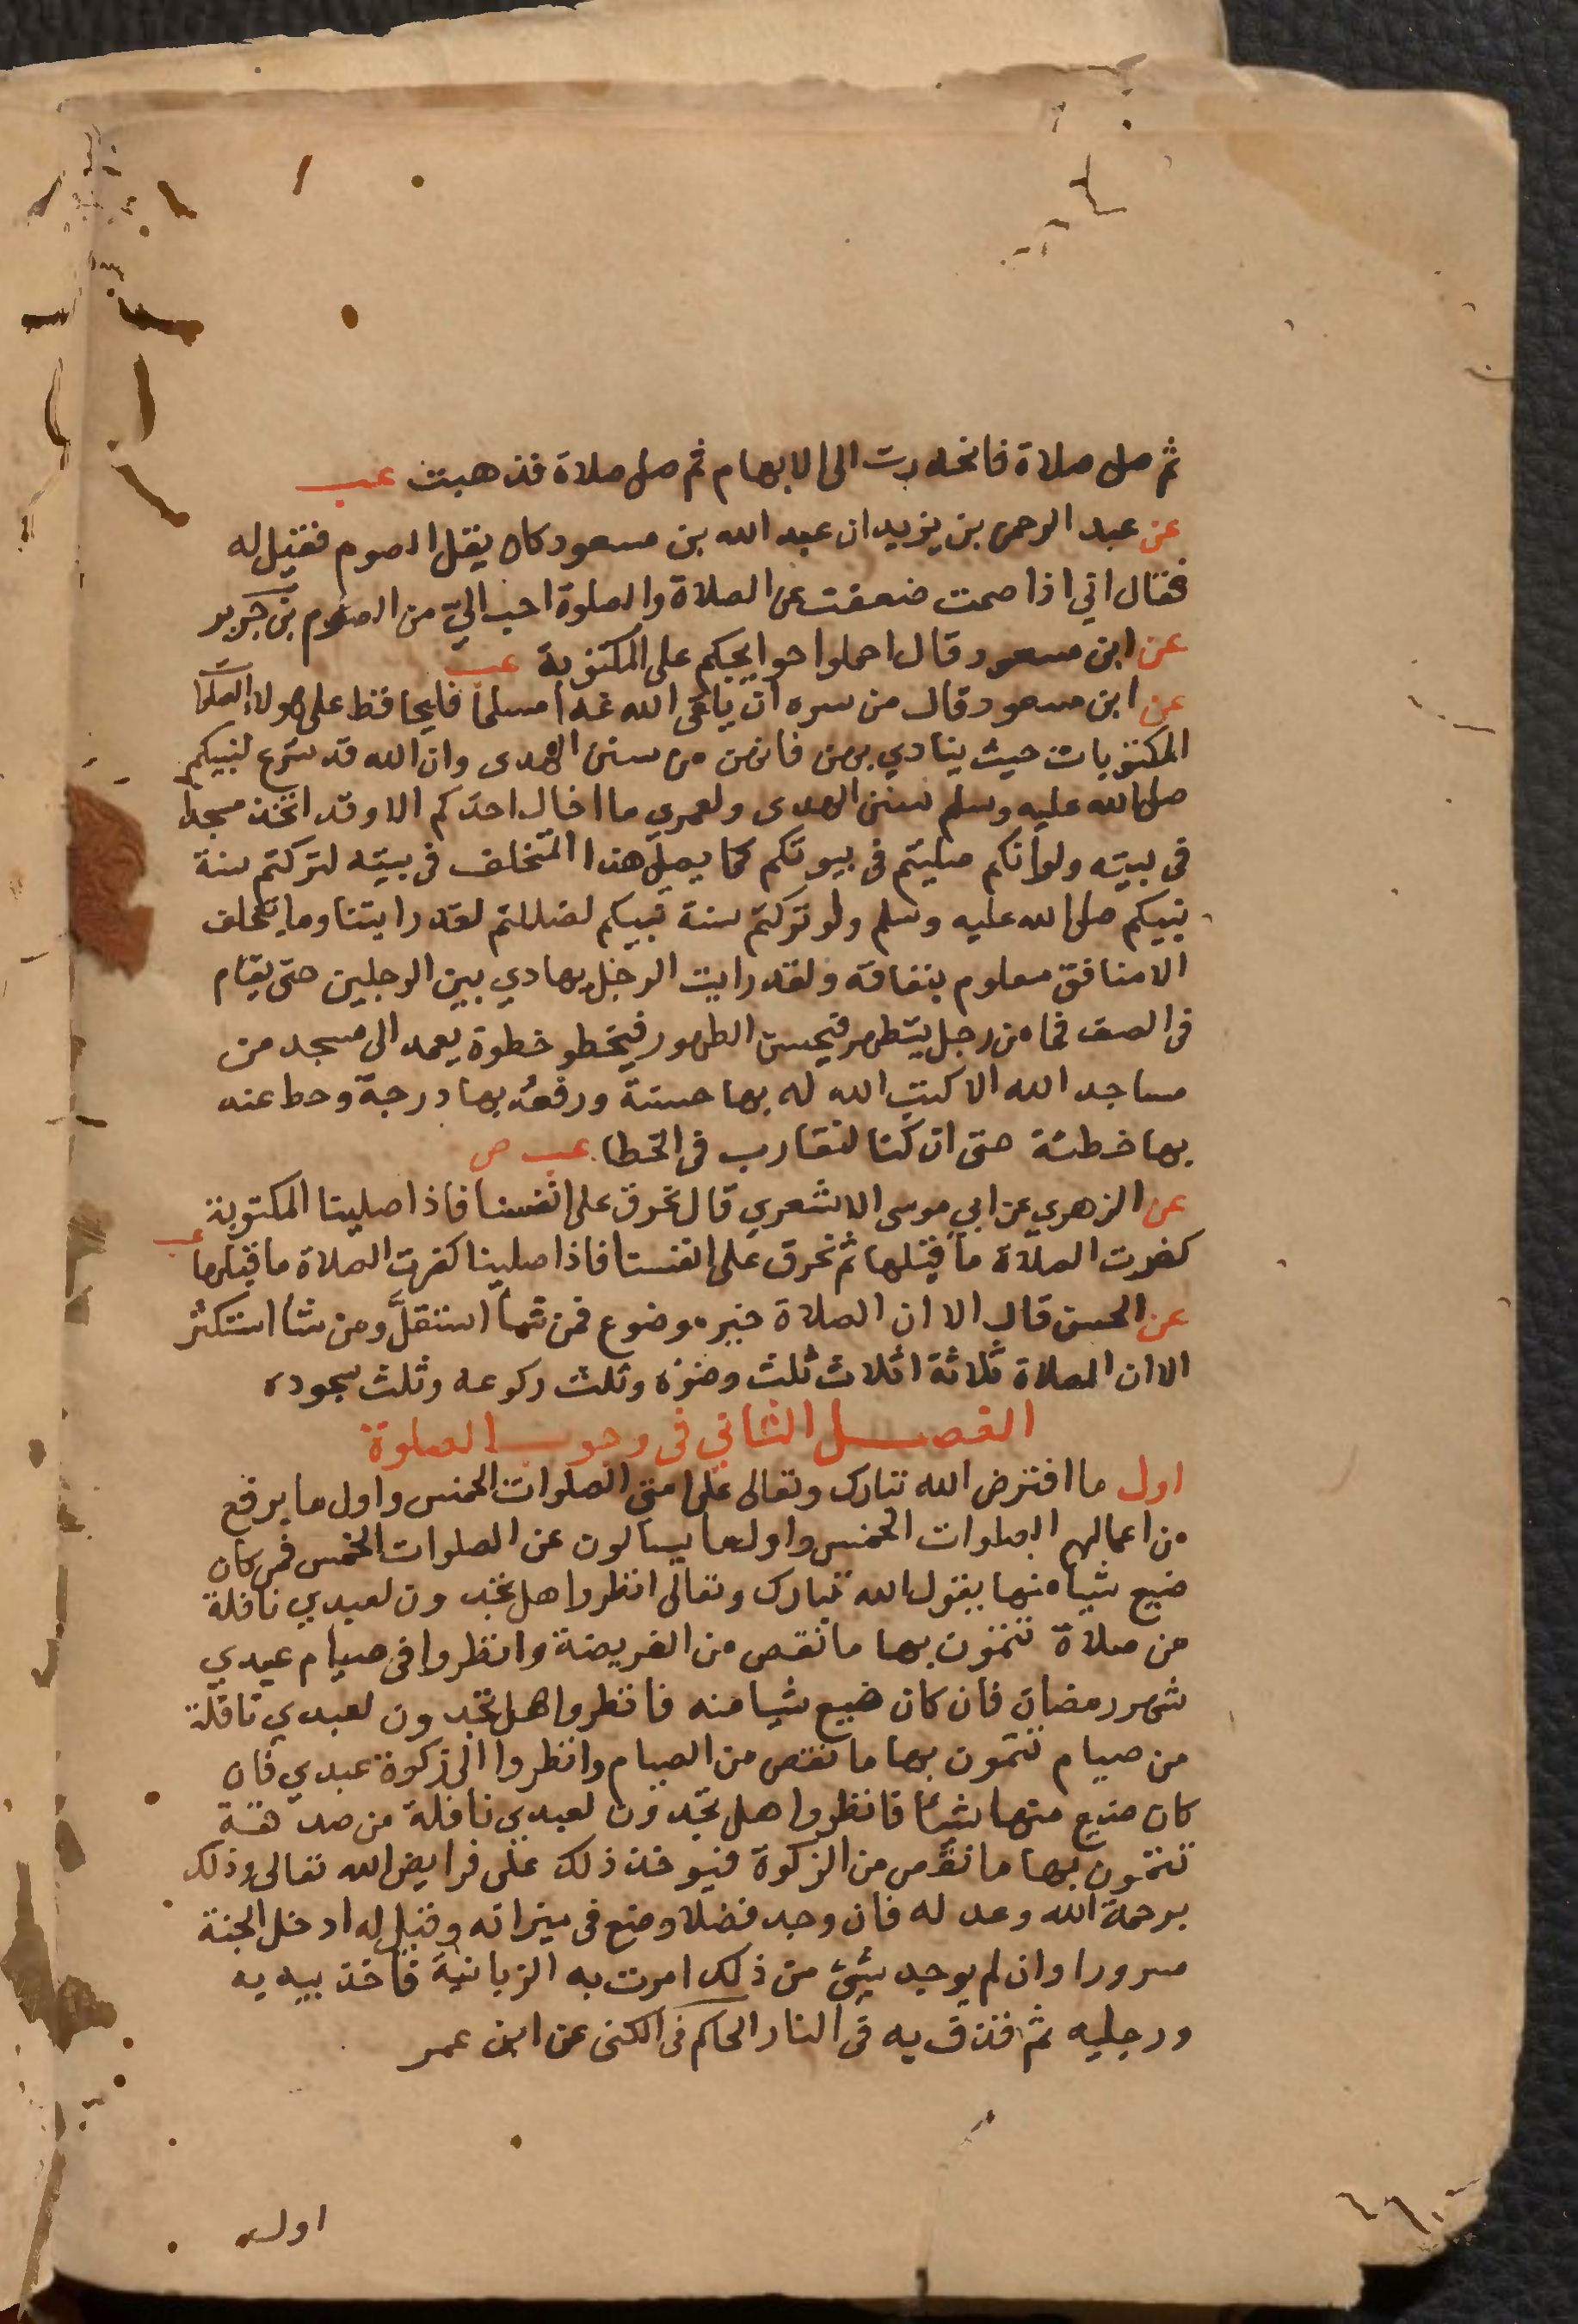 ثم صلى صلاة فانحدرت الى الابهام ثم صلى صلاة فذهبت عب
عن عبد الرحمن بن يزيد ان عبد الله بن مسعود كان يقل الصوم فقيل له
فقال اني اذا صمت ضعفت عن الصلاة والصلوة احب اليّ من الصوم بن جرير
عن ابن مسعود قال احملوا حوايجكم على المكتوبة عب
عن ابن مسعود قال من سره ان يلقى الله غدا مسلما فليحافظ على هولاء الصلوا
المكتوبات حيث ينادي بهن فانهن من سنن الهدى وان الله قد شرع لنبيكم
صلى الله عليه وسلم سنن الهدى ولعمري ما اخال احدكم الا وقد اتخذ مسجدا
فى بيته ولو أنكم صليتم فى بيوتكم كما يصلى هذا المتخلف فى بيته لتركتم سنة
نبيكم صلى الله عليه وسلم ولو تركتم سنة نبيكم لضللتم لقد رايتنا وما يتخلف
الا منافق معلوم بنفاقه ولقد رايت الرجل يهادي بين الرجلين حتى يقام
فى الصف فما من رجل يتطهر فيحسن الطهور فيخطو خطوة يعمد الى مسجد من
مساجد الله الا كتب الله له بها حسنة ورفعه بها درجة وحط عنه
بها خطئة حتى ان كنا لنقارب فى الخطا عب ص
عن الزهري عن ابي موسى الاشعري قال نحرق على انفسنا فاذا صلينا المكتوبة
كفرت الصلاة ما قبلها ثم نحرق على انفسنا فاذا صلينا كفرت الصلاة ما قبلها عب
عن الحسن قال الا ان الصلاة خير موضوع فمن شا استقلّ ومن شا استكثر
الا ان الصلاة ثلاثة اثلاث ثلث وضوه وثلث ركوعه وثلث سجوده
الفصل الثاني فى وجوب الصلوة
اول ما افترض الله تبارك وتعالى على امتى الصلوات الخمس واول ما يرفع
من اعمالهم الصلوات الخمس واول ما يسالون عن الصلوات الخمس فمن كان
ضيع شيا منها يقول الله تبارك وتعالى انظروا هل تجدون لعبدي نافلة
من صلاة تتمون بها ما نقص من الفريضة وانظروا فى صيام عبدي
شهر رمضان فان كان ضيع شيا منه فانظروا هل تجدون لعبدي نافلة
من صيام تتمون بها ما نقص من الصيام وانظروا الى زكوة عبدي فان
كان ضيع منها شيأ فانظروا هل تجدون لعبدي نافلة من صدقة
تتمون بها ما نقص من الزكوة فيوخذ ذلك على فرايض الله تعالى وذلك
برحمة الله وعدله فان وجد فضلا وضع فى ميزانه وقيل له ادخل الجنة
مسرورا وان لم يوجد شئ من ذلك امرت به الزبانية فاخذ بيديه
ورجليه ثم قذف به فى النار الحاكم فى الكنى عن ابن عمر
اول